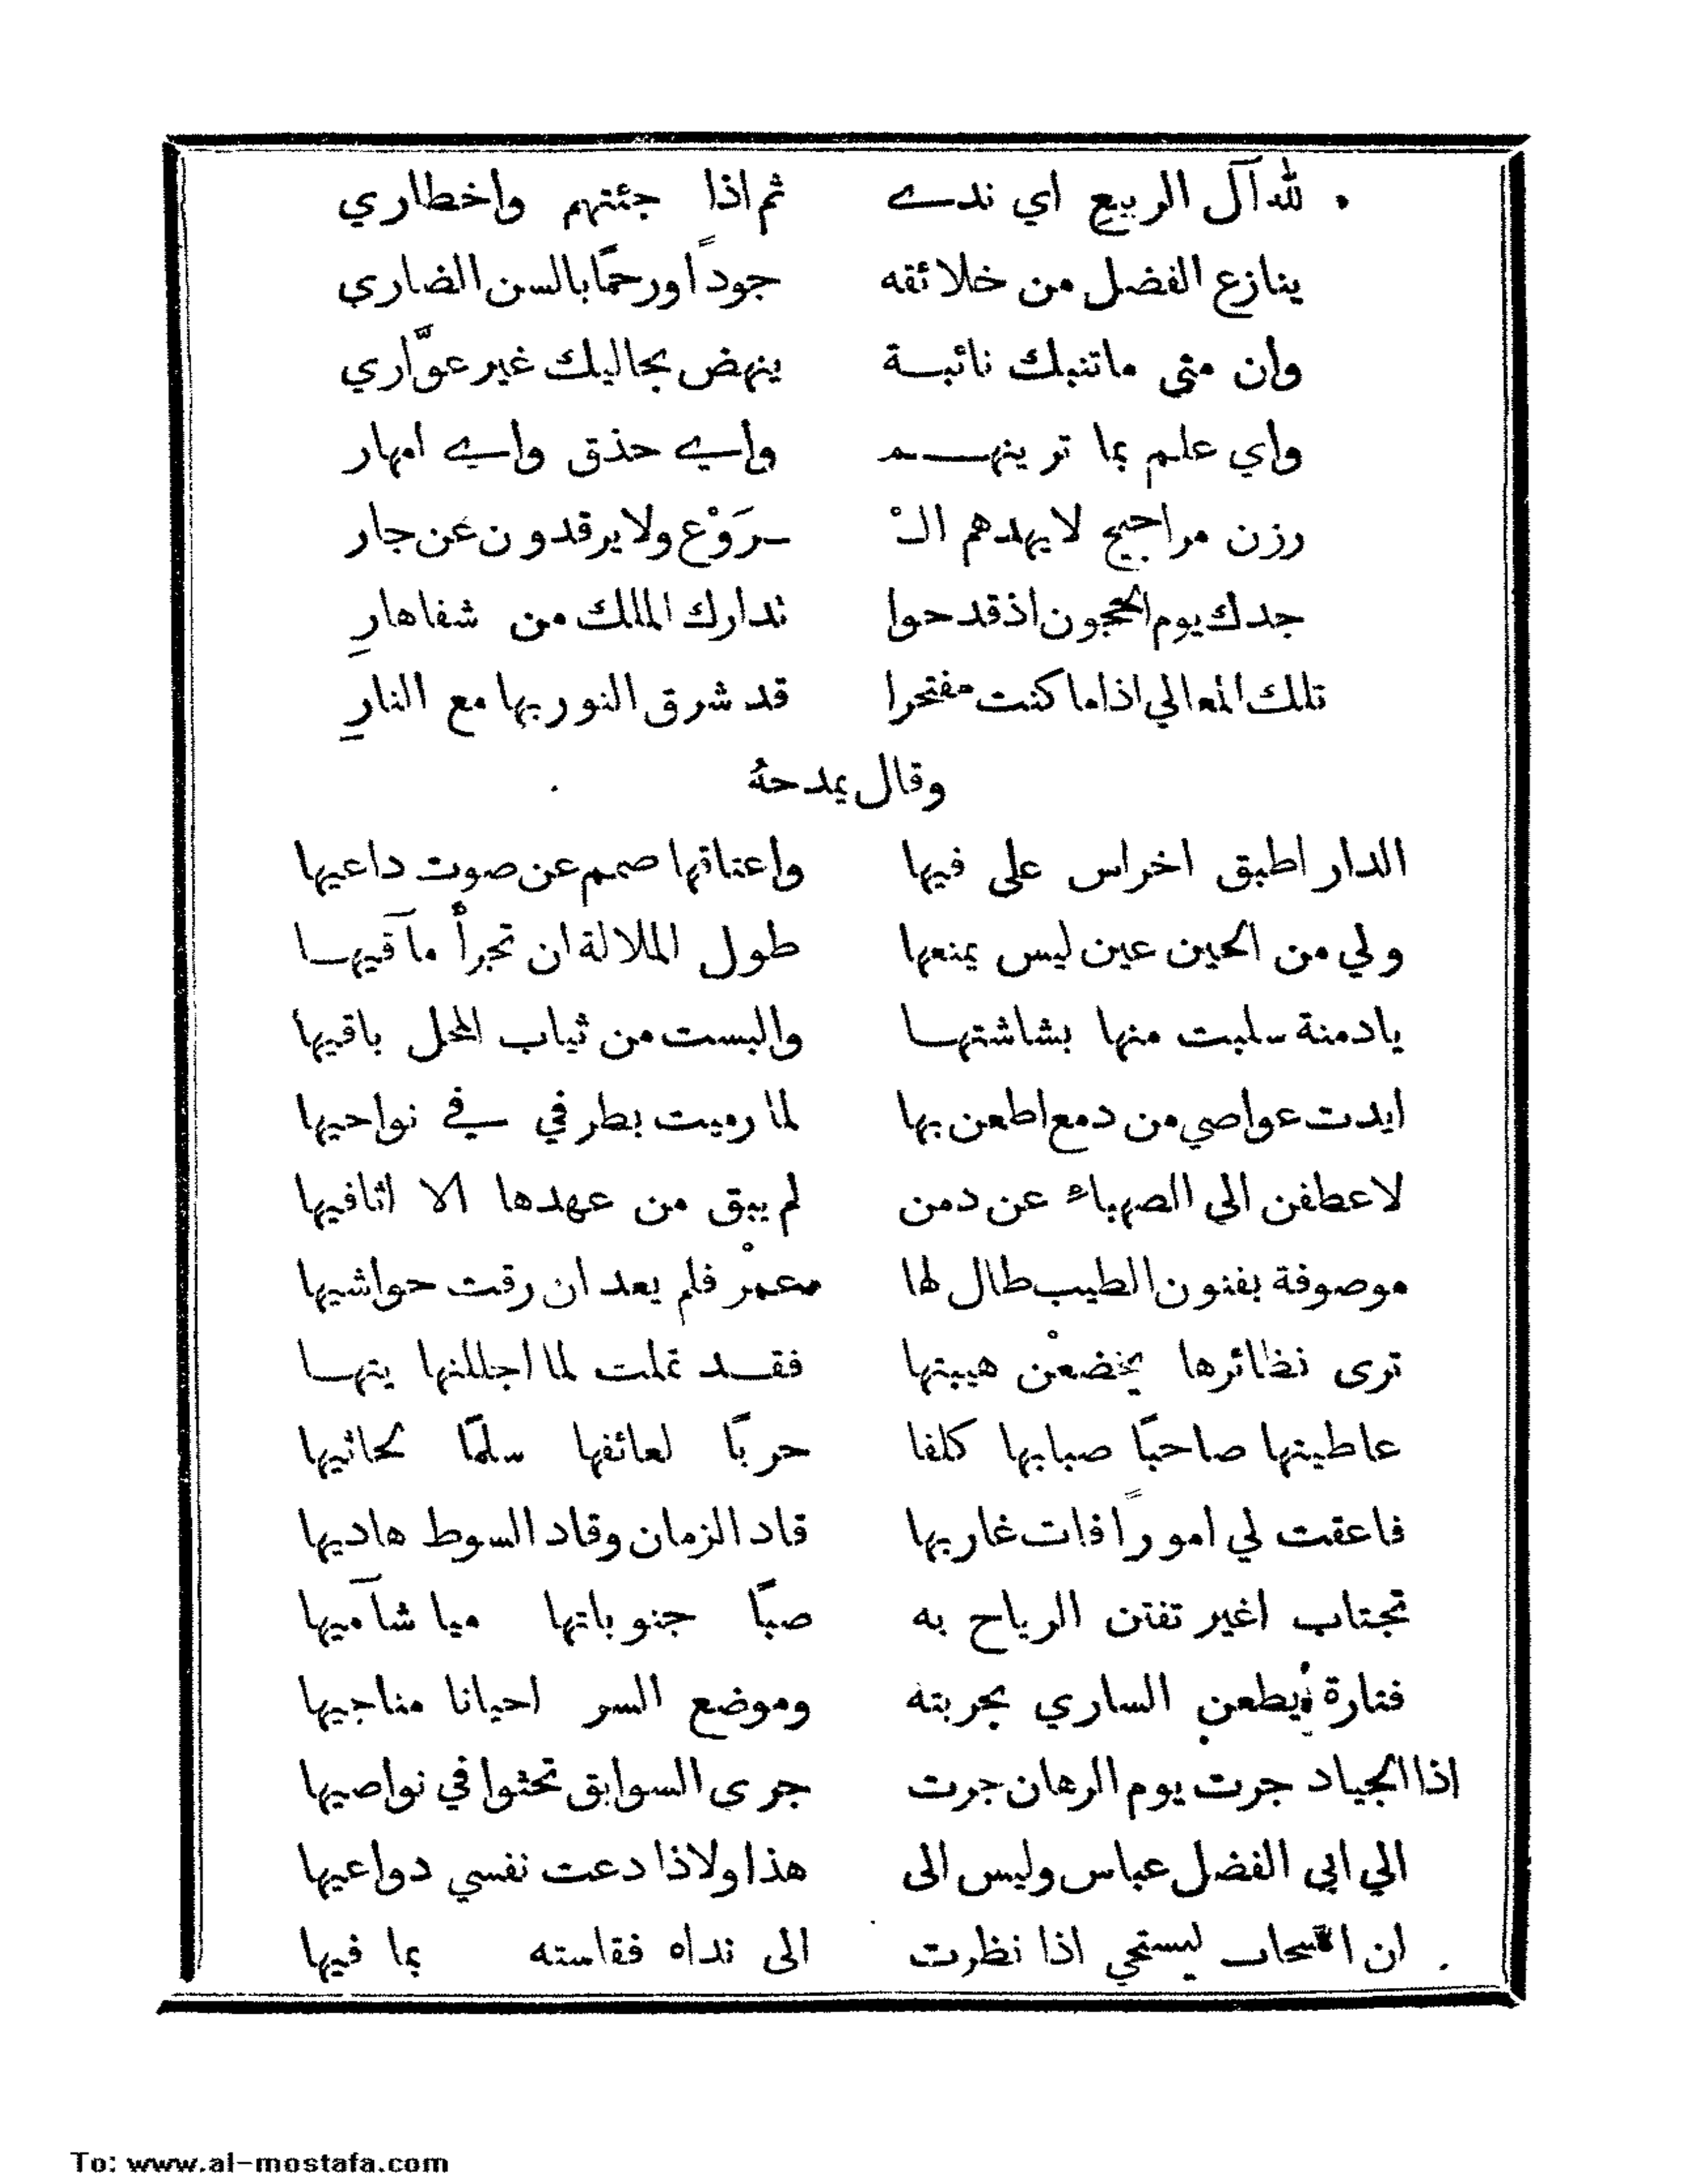 لله آل الربيع اي ندے ثم اذا جئتهم واخطاري
ينازع الفضل من خلائقه جوداً ورحمًا بالسن الضاري
وان متى ماتنبك نائبـة ينهض بجاليك غير عوّاري
واي علم بما ترينهـم واے حذق واے امهار
رزن مراجيح لايهدهم الـْ ـرَوْع ولا يرقدون عن جار
جدك يوم الحجون اذ قدحوا تدارك الملك من شفاهارِ
تلك المعالي اذاما كنت مفتحرا قد شرق النور بها مع النارِ
وقال يمدحهُ
الدار اطبق اخراس على فيها واعتاقها صمم عن صوت داعيها
ولي من الحين عين ليس يمنعها طول الملالة ان تجرأ مآقيهـا
يادمنة سلبت منها بشاشتهـا والبست من ثياب المحل باقيها
ابدت عواصي من دمع اطعن بها لما رميت بطرفي في نواحيها
لاعطفن الى الصهباء عن دمن لم يبق من عهدها الا اثافيها
موصوفة بفنون الطيب طال لها عمْر فلم يعد ان رقت حواشيها
ترى نظائرها يخضعْن هيبتها فقـد تملت لما اجللنها يتهـا
عاطيتها صاحبًا صبابها كلفا حربًا لعائفها سلمًا لحاثيها
فاعقت لي اموراً فات غاربها قاد الزمان وقاد السوط هاديها
تجتاب اغير تفتن الرياح به صبًا جنوباتها ميا شآميها
فتارة يطعن الساري بحربته وموضع السر احيانا مناجيها
اذا الجياد جرت يوم الرهان جرت جرى السوابق تحثوا في نواصيها
الي ابي الفضل عباس وليس الى هذا ولاذا دعت نفسي دواعيها
ان السحاب ليستحي اذا نظرت الى نداه فقاسته بما فيها
To: www.al-mostafa.com